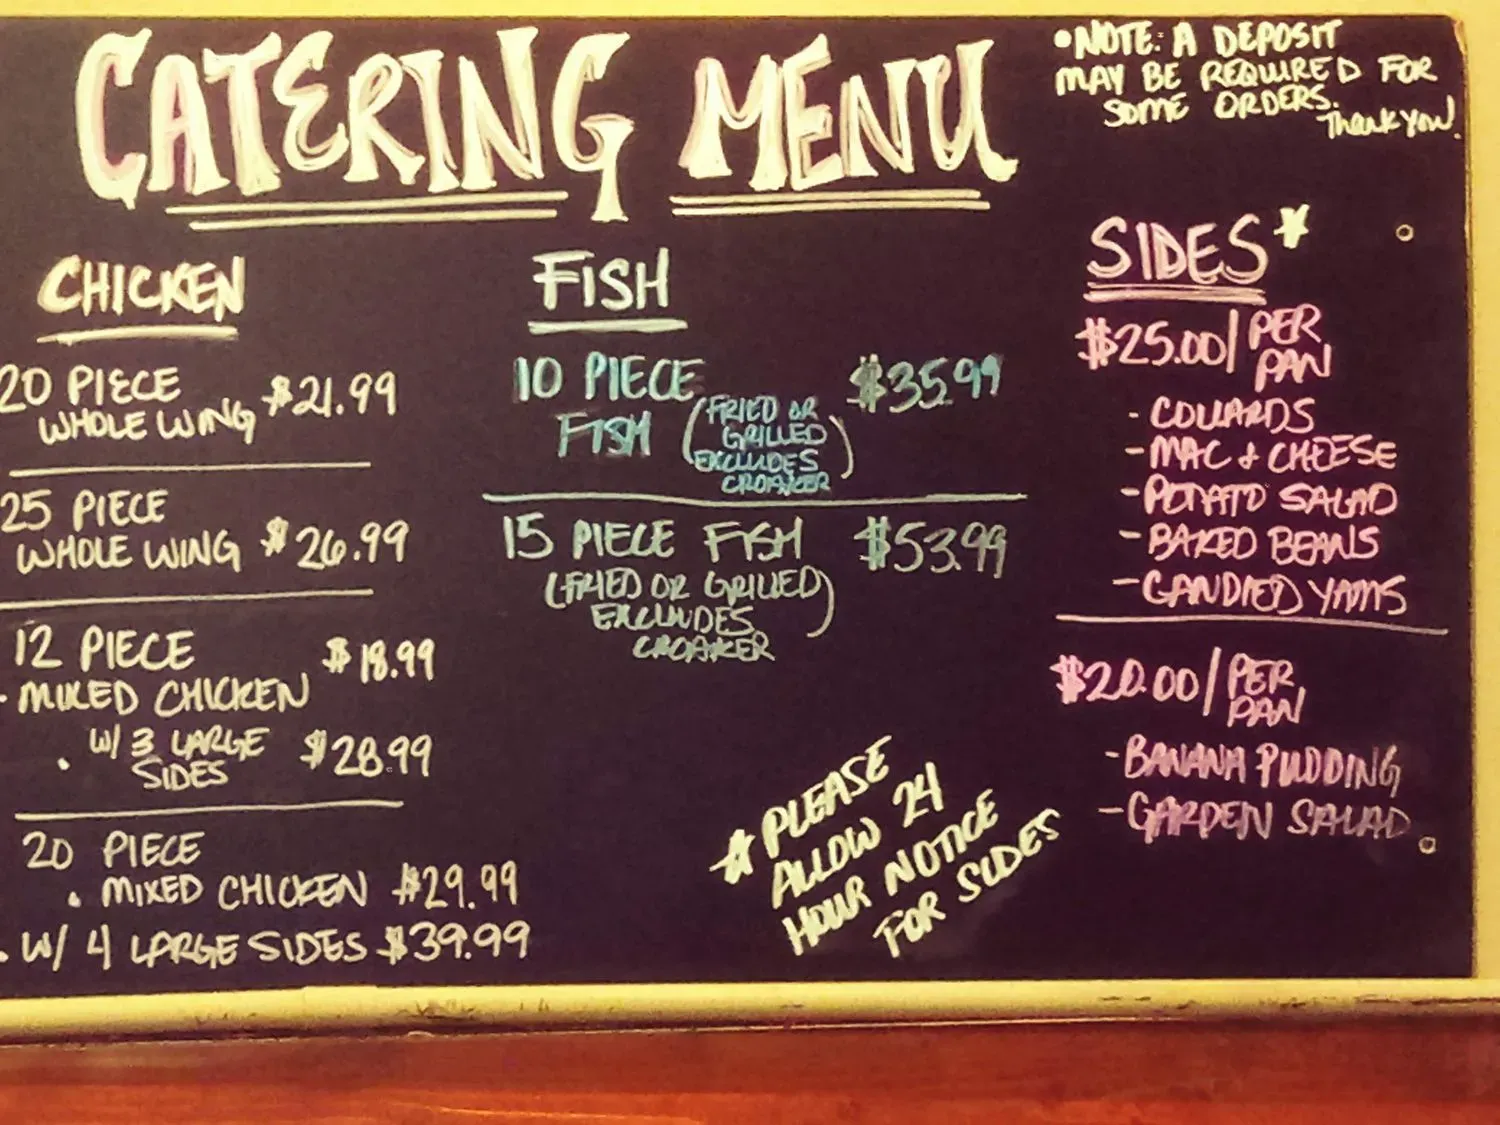 CATERING MENU
• NOTE: A DEPOSIT
MAY BE REQUIRED FOR
SOME ORDERS.
Thank you!
CHICKEN
20 PIECE
WHOLE WING $21.99
25 PIECE
WHOLE WING $26.99
12 PIECE $18.99
- MIXED CHICKEN
• W/ 3 LARGE $28.99
SIDES
20 PIECE
• MIXED CHICKEN $29.99
• W/ 4 LARGE SIDES $39.99
FISH
10 PIECE $35.99
FISH (FRIED OR
GRILLED
EXCLUDES
CROAKER)
15 PIECE FISH $53.99
(FRIED OR GRILLED)
EXCLUDES
CROAKER
* PLEASE
ALLOW 24
HOUR NOTICE
FOR SIDES
SIDES*
$25.00/ PER
PAN
- COLLARDS
- MAC & CHEESE
- POTATO SALAD
- BAKED BEANS
- CANDIED YAMS
$20.00/ PER
PAN
- BANANA PUDDING
- GARDEN SALAD